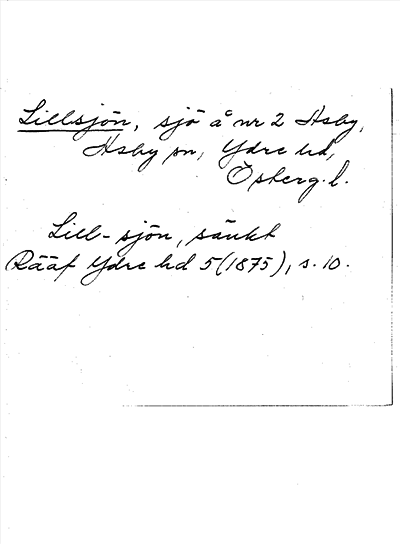 Lillsjön, sjö å nr 2 Asby,
Asby sn, Ydre hd,
Österg. l.
Lill-sjön, sänkt
Rääf Ydre hd 5 (1875), s. 10.